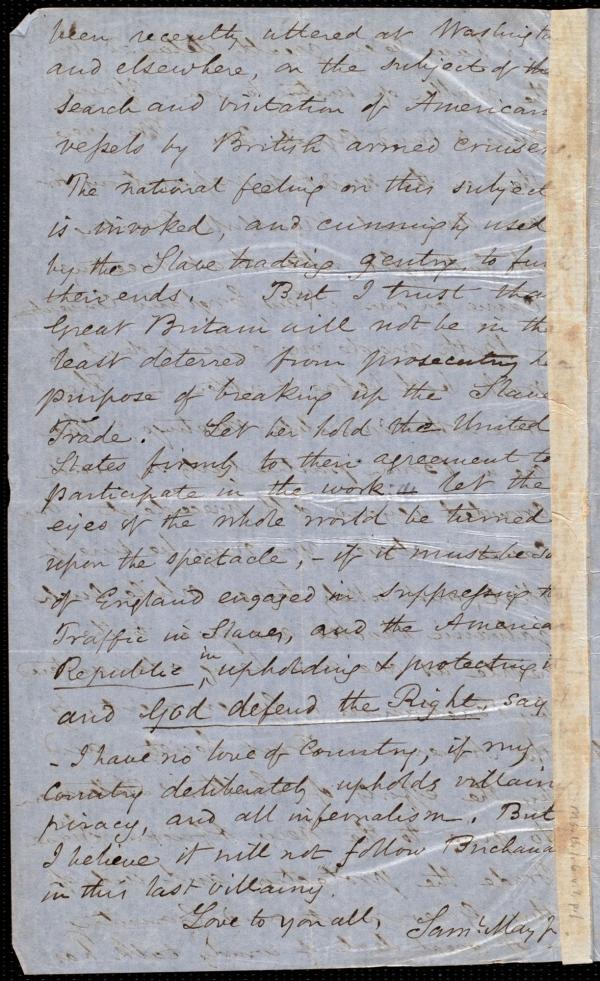 been recently uttered at Washingt
and elsewhere, on the subject of the
search and visitation of American
vessels by British armed cruisers
The national feeling on this subject
is invoked, and cunningly used
by the Slave trading gentry, to fur
their ends. But I trust that
Great Britain will not be in the
least deterred from prosecuting h
purpose of breaking up the Slave
Trade. Let her hold the United
States firmly to their agreement to
participate in the work & let the
eyes of the whole world be turned
upon the spectacle, - if it must be so
of England engaged in suppressing t
Traffic in Slaves, and the America
Republic in upholding & protecting i
and God defend the Right, say
- I have no love of Country, if my
Country deliberately upholds villain
piracy, and all infernalism. But
I believe it will not follow Buchana
in this last villainy.
Love to you all, Saml. May Jr